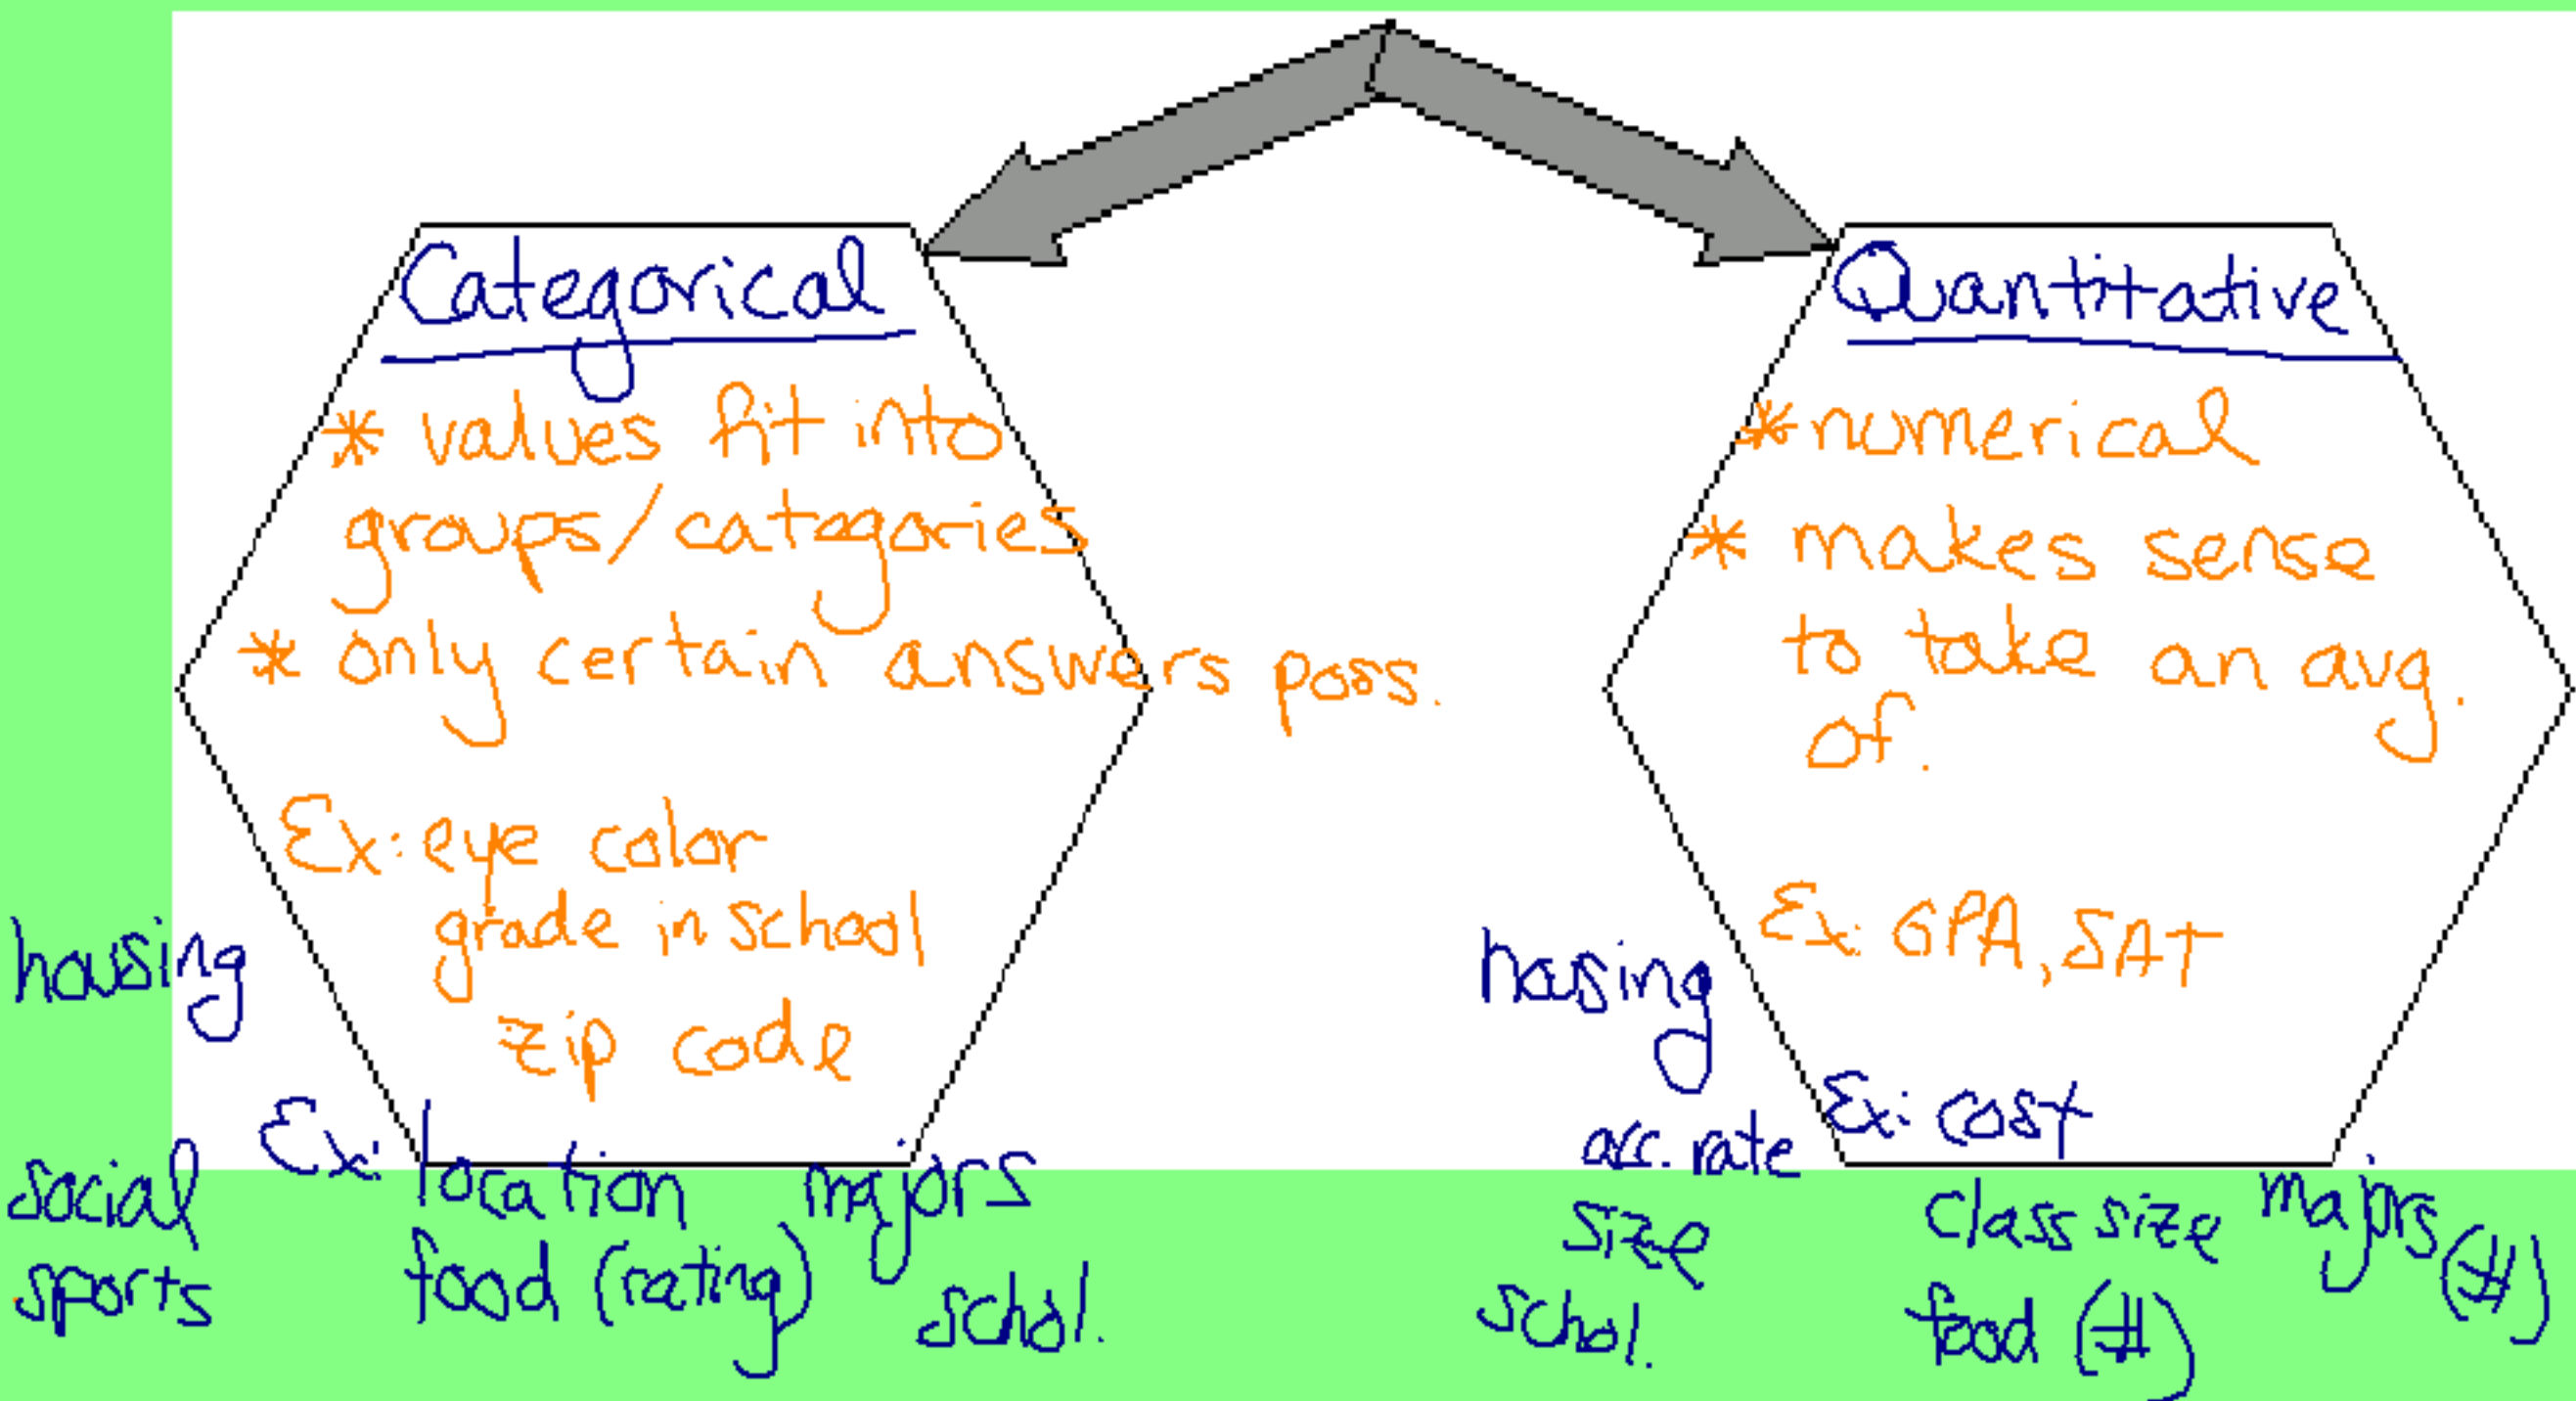 Categorical
* values fit into
groups/categories
* only certain answers poss.
Ex: eye color
grade in school
zip code
housing
Ex: location majors
social
food (rating) schol.
sports
Quantitative
* numerical
* makes sense
to take an avg.
of.
Ex: GPA, SAT
housing
Ex: cost
acc. rate
size class size majors (#)
schol. food (#)